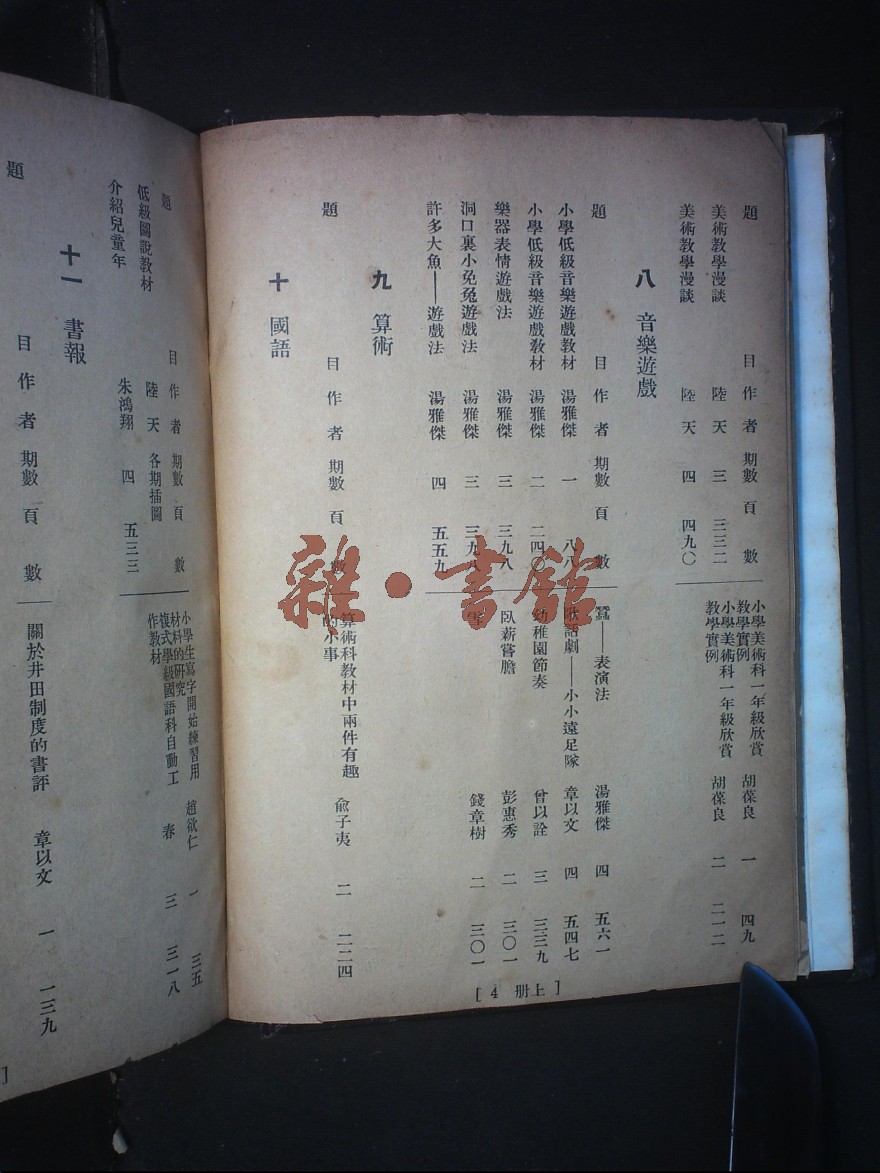 題 目 作者 期數 頁數
美術教學漫談 陸天 三 三三二
美術教學漫談 陸天 四 四九〇
小學美術科一年級欣賞教學實例 胡葆良 一 四九
小學美術科一年級欣賞教學實例 胡葆良 二 二一二
八 音樂遊戲
題 目 作者 期數 頁數
小學低級音樂遊戲教材 湯雅傑 一 八八
小學低級音樂遊戲教材 湯雅傑 二 二四〇
樂器表情遊戲法 湯雅傑 三 三九八
洞口裏小兔兔遊戲法 湯雅傑 三 三九八
許多大魚——遊戲法 湯雅傑 四 五五九
蠶——表演法 湯雅傑 四 五六一
話劇——小小遠足隊 章以文 四 五四七
幼稚園節奏 曾以詮 三 三三九
臥薪嘗膽 彭惠秀 二 三〇一
錢章樹 二 三〇一
九 算術
題 目 作者 期數 頁數
算術科教材中兩件有趣的小事 兪子夷 二 二二四
十 國語
[4 册上]
題 目 作者 期數 頁數
低級圖說教材 陸天 各期插圖
介紹兒童年 朱鴻翔 四 五三三
小學生寫字開始練習用材料的研究 趙欲仁 一 三五
複式學級國語科自動工作教材 春 三 三一八
十一 書報
題 目 作者 期數 頁數
關於井田制度的書評 章以文 一 一三九
雜·書館